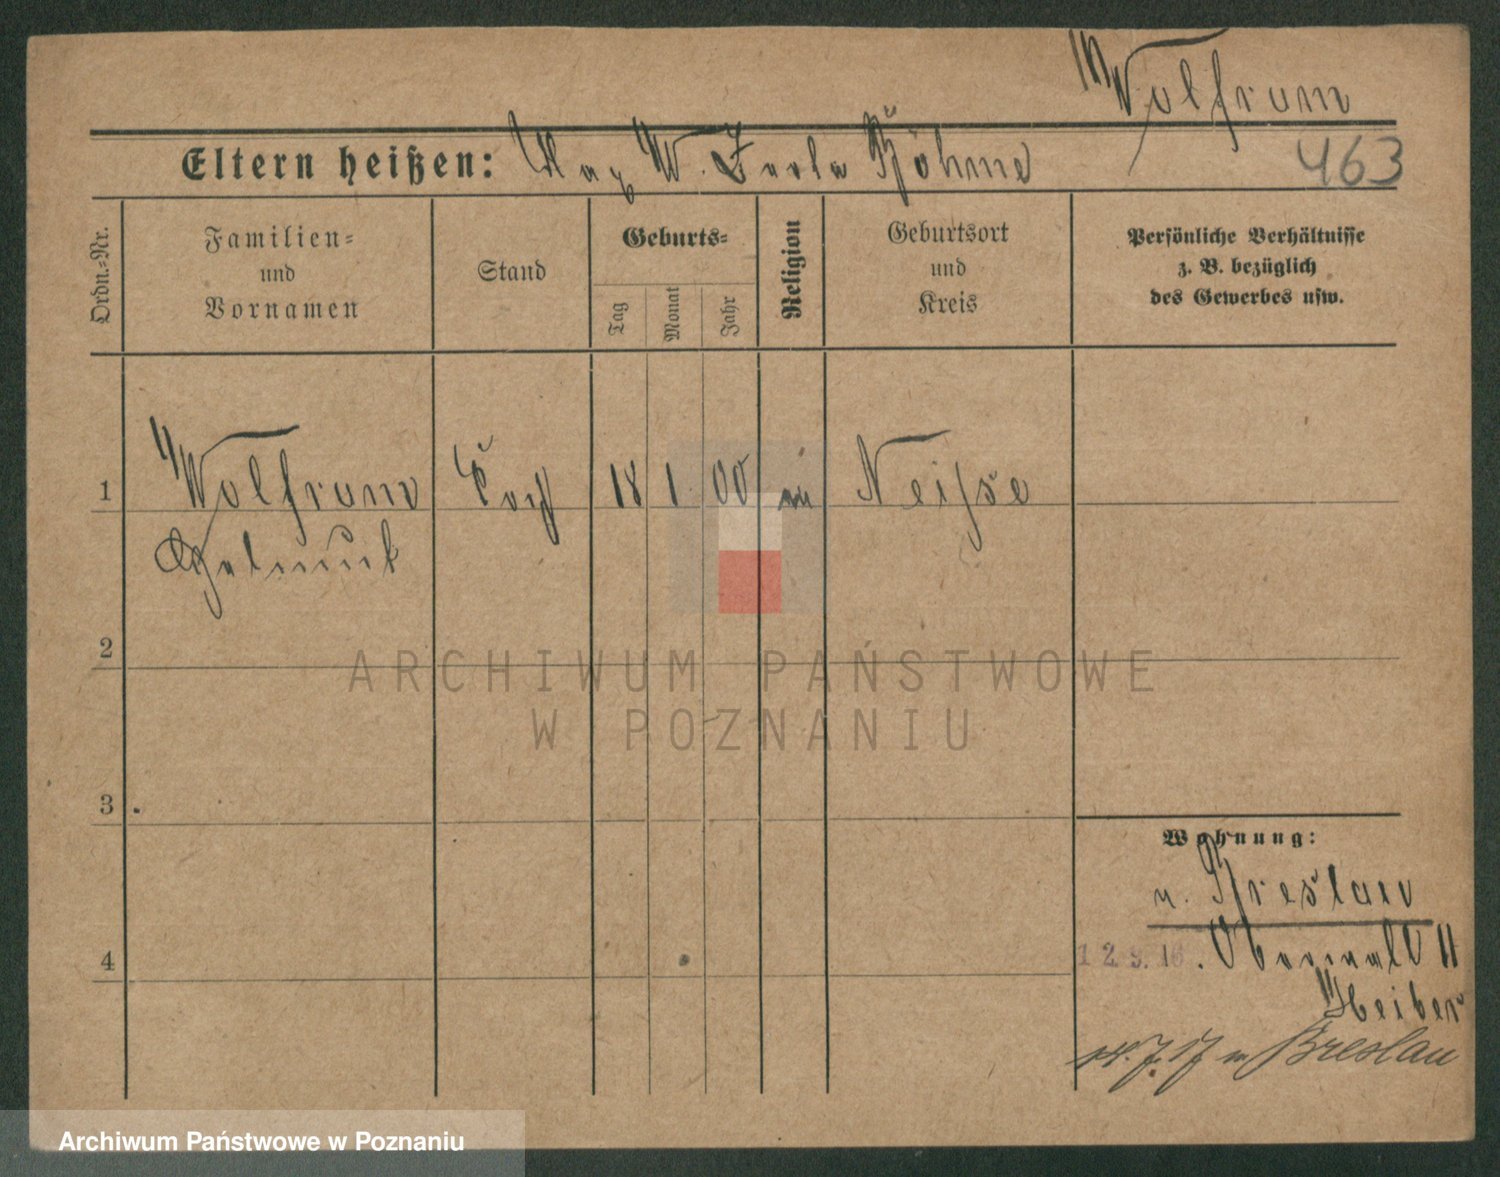 Wolfrum
Eltern heißen: Max W. Böhme
463
Ordn.-Nr.
Familien-
und
Vornamen
Stand
Geburts-
Tag
Monat
Jahr
Religion
Geburtsort
und
Kreis
Persönliche Verhältnisse
z. B. bezüglich
des Gewerbes usw.
1 Wolfrum 18 1 00 Neisse
Helmut
2
3
4
Wohnung:
n. Breslau
12.9.16. 11
Heiber
14.7.17 n Breslau
ARCHIWUM PAŃSTWOWE
W POZNANIU
Archiwum Państwowe w Poznaniu